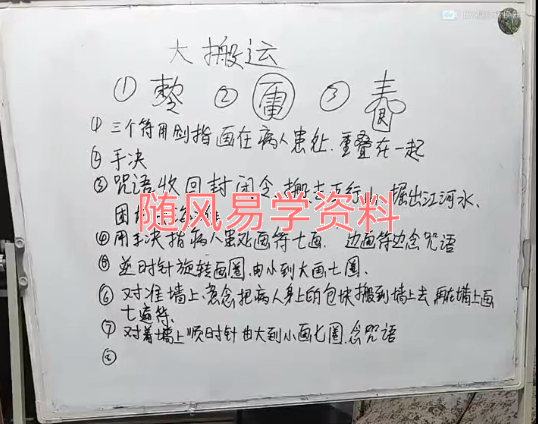 大搬运
① ② ③
① 三个符用剑指画在病人患处.重叠在一起
② 手决
③ 咒语收回封闭令.搬去五行山.掘出江河水、
随风易学资料
④ 用手决指病人患处画符七画. 边画符边念咒语
⑤ 逆时针旋转画圈.由小到大画七圈、
⑥ 对准墙上.意念把病人身上的包块搬到墙上去.再在墙上画
七遍符.
⑦ 对着墙上顺时针由大到小画七圈.念咒语
⑧